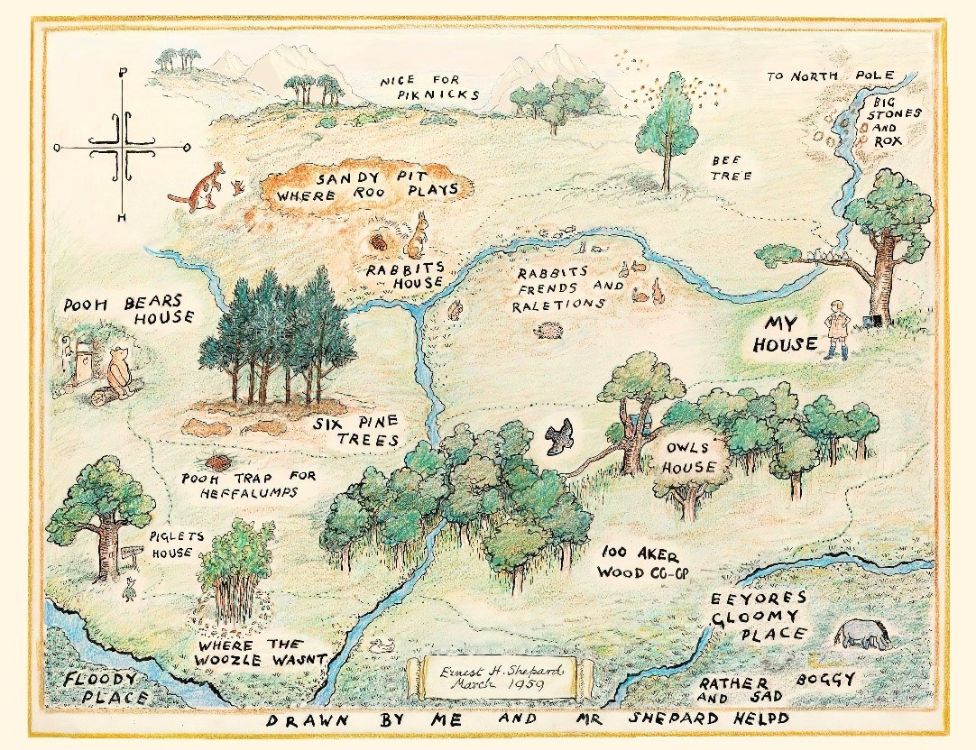 P
O
O
H
NICE FOR
PIKNICKS
TO NORTH POLE
BIG
STONES
AND
ROX
BEE
TREE
SANDY PIT
WHERE ROO PLAYS
RABBITS
HOUSE
RABBITS
FRENDS AND
RALETIONS
POOH BEARS
HOUSE
MY
HOUSE
SIX PINE
TREES
OWLS
HOUSE
POOH TRAP FOR
HEFFALUMPS
PIGLETS
HOUSE
100 AKER
WOOD CO-OP
EEYORES
GLOOMY
PLACE
WHERE THE
WOOZLE WASNT
FLOODY
PLACE
Ernest H. Shepard
March 1959
RATHER BOGGY
AND SAD
DRAWN BY ME AND MR SHEPARD HELPD